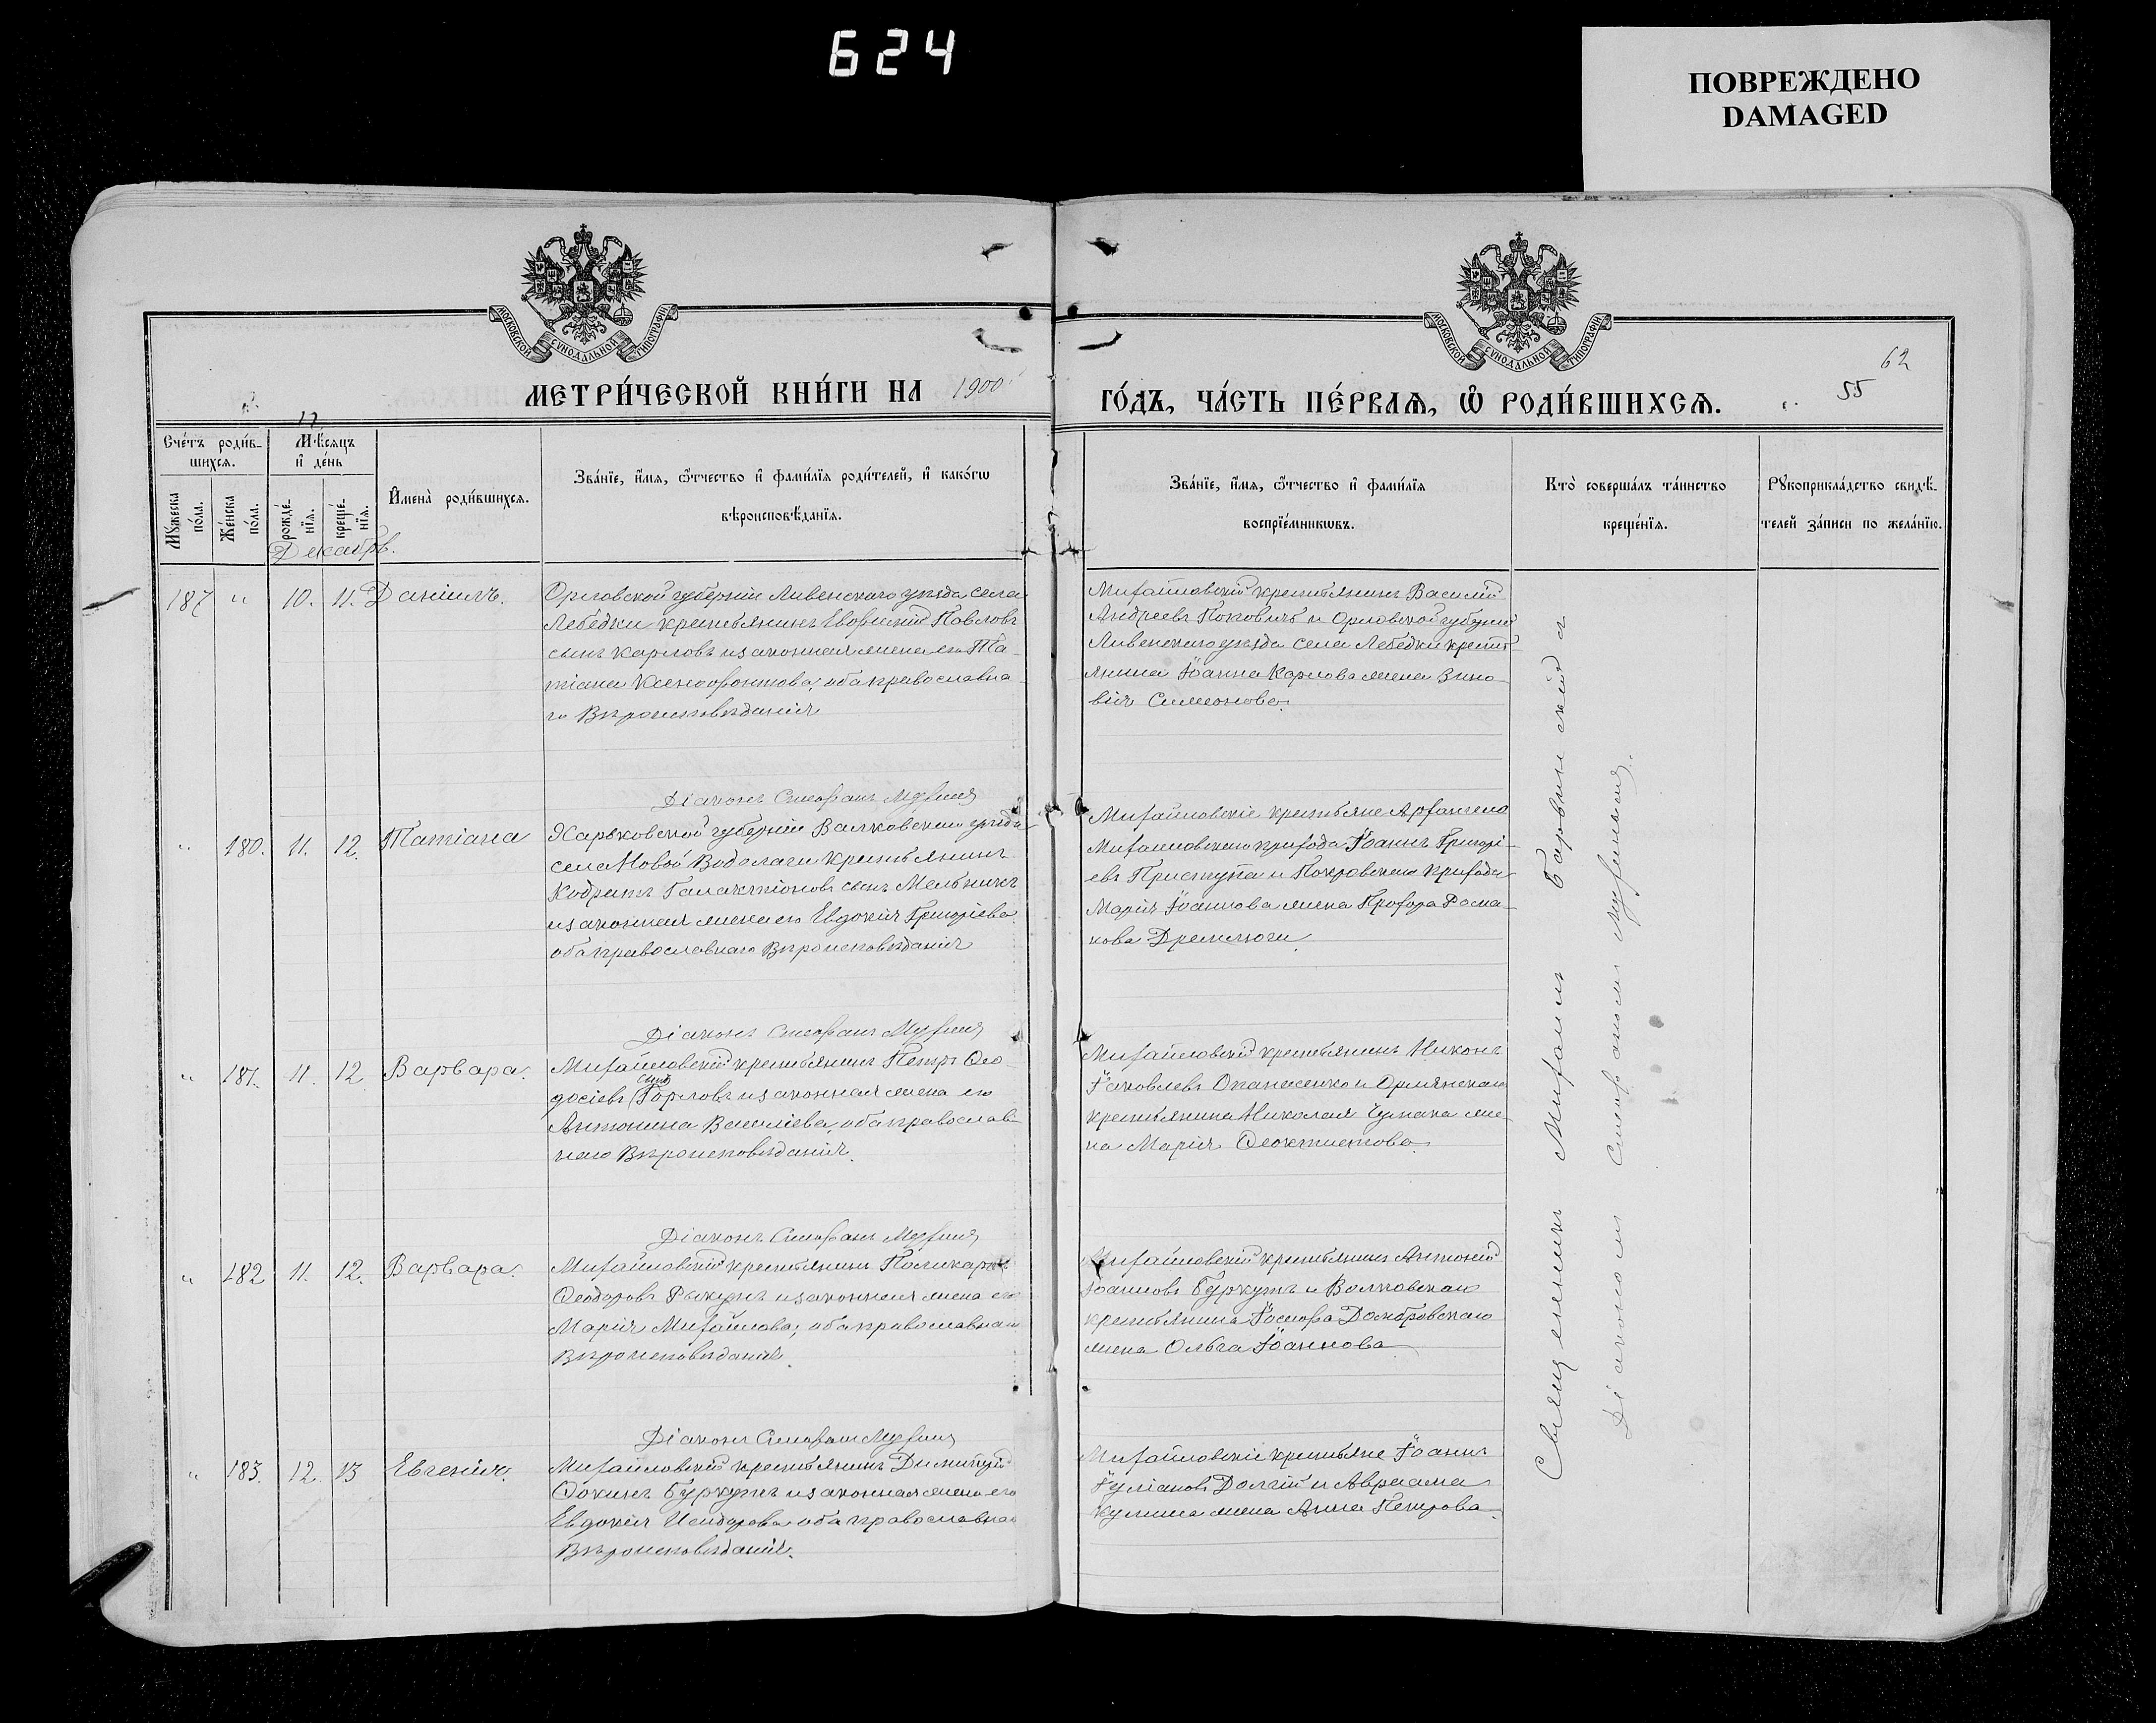 624
ПОВРЕЖДЕНО
DAMAGED
МОСКОВСКОЙ СѴНОДАЛЬНОЙ ТИПОГРАФІИ
МОСКОВСКОЙ СѴНОДАЛЬНОЙ ТИПОГРАФІИ
62
55
МЕТРИ́ЧЕСКОЙ КНИ́ГИ НА 1900
ГО́ДЪ, ЧА́СТЬ ПЕ́РВАѦ, Ѡ҆ РОДИ́ВШИХСѦ.
Сче́тъ роди́в-
шихсѧ.
Мꙋ́жеска по́ла.
Же́нска по́ла.
Мѣ́сѧцъ
и҆ де́нь
рожде́-
нїѧ.
креще́-
нїѧ.
И҆мена̀ роди́вшихсѧ.
Зва́нїе, и҆́мѧ, ѻ҆́тчество и҆ фами́лїѧ роди́телей, и҆ како́гѡ
вѣроисповѣ́данїѧ.
Зва́нїе, и҆́мѧ, ѻ҆́тчество и҆ фами́лїѧ
воспрїе́мникѡвъ.
Кто̀ соверша́лъ та́инство
креще́нїѧ.
Рꙋкоприкла́дство свидѣ́-
телей за́писи по жела́нїю.
Декабрь.
187 " 10. 11. Даніилъ.
Орловской губерніи Ливенскаго уѣзда села
Лебедки крестьянинъ Павловъ
сынъ Карловъ и законная жена его Та-
тіана Ксенофонтова, оба православна-
го Вѣроисповѣданія
Михайловскій крестьянинъ Василій
Андреевъ и Орловской губерніи
Ливенскаго уѣзда села Лебедки кресть-
янина Іоанна Карлова жена Зино-
вія Симеонова.
Діаконъ Стефанъ Мухинъ
" 180. 11. 12. Татіана
Харьковской губерніи Валковскаго уѣзда
села Новой Водолаги крестьянинъ
Кодратъ Галактіоновъ сынъ Мельникъ
и законная жена его Евдокія Григоріева
оба православнаго Вѣроисповѣданія
Михайловскіе крестьяне Архангело
Михайловскаго прихода Іоаннъ Григорі-
евъ Приступа и Покровскаго прихода
Марія Іоаннова жена Прохора Рома-
нова Дремлюги.
Діаконъ Стефанъ Мухинъ
" 181. 11. 12. Варвара.
Михайловскій крестьянинъ Петръ Ѳео-
досіевъ сынъ Горловъ и законная жена его
Антонина Василіева, оба православ-
наго Вѣроисповѣданія.
Михайловскій крестьянинъ Никонъ
Іаковлевъ Опанасенко и Орлянскаго
крестьянина Николая Чумака же-
на Марія Ѳеоктистова.
Діаконъ Стефанъ Мухинъ
" 182 11. 12. Варвара.
Михайловскій крестьянинъ Поликарпъ
Ѳеодоровъ Рыкунъ и законная жена его
Марія Михайлова, оба православнаго
Вѣроисповѣданія.
Михайловскій крестьянинъ Антоній
Іоанновъ Буркутъ и Волковскаго
крестьянина Іосифа Домбровскаго
жена Ольга Іоаннова
Діаконъ Стефанъ Мухинъ
" 183. 12. 13 Евгенія.
Михайловскій крестьянинъ Димитрій
Ѳокинъ Буркутъ и законная жена его
Евдокія Исидорова оба православнаго
Вѣроисповѣданія.
Михайловскіе крестьяне Іоаннъ
Іуліановъ Долгій и Авраама
Кулиша жена Анна Петрова.
Священникъ Михаилъ Барвинскій с
Діакономъ Стефаномъ Мухинымъ.